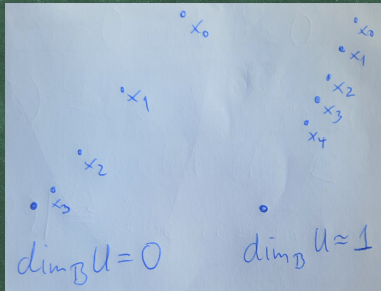 x₀
x₁
x₂
x₃
dim_B U = 0
x₀
x₁
x₂
x₃
x₄
dim_B U ≈ 1